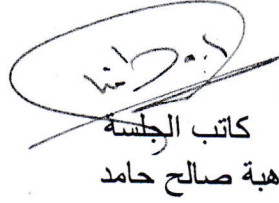 كاتب الجلسة
هبة صالح حامد